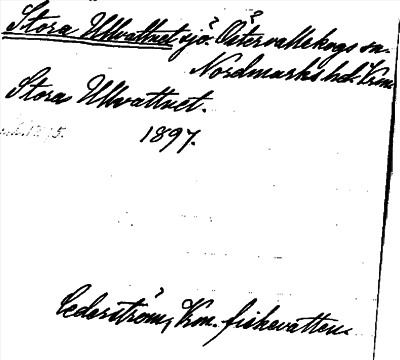 Stora Ullvattnet sjö. Östervallskogs sn.
Nordmarks hd. Vrm
Stora Ullvattnet.
1897.
Cederström, Vrm. fiskevatten.